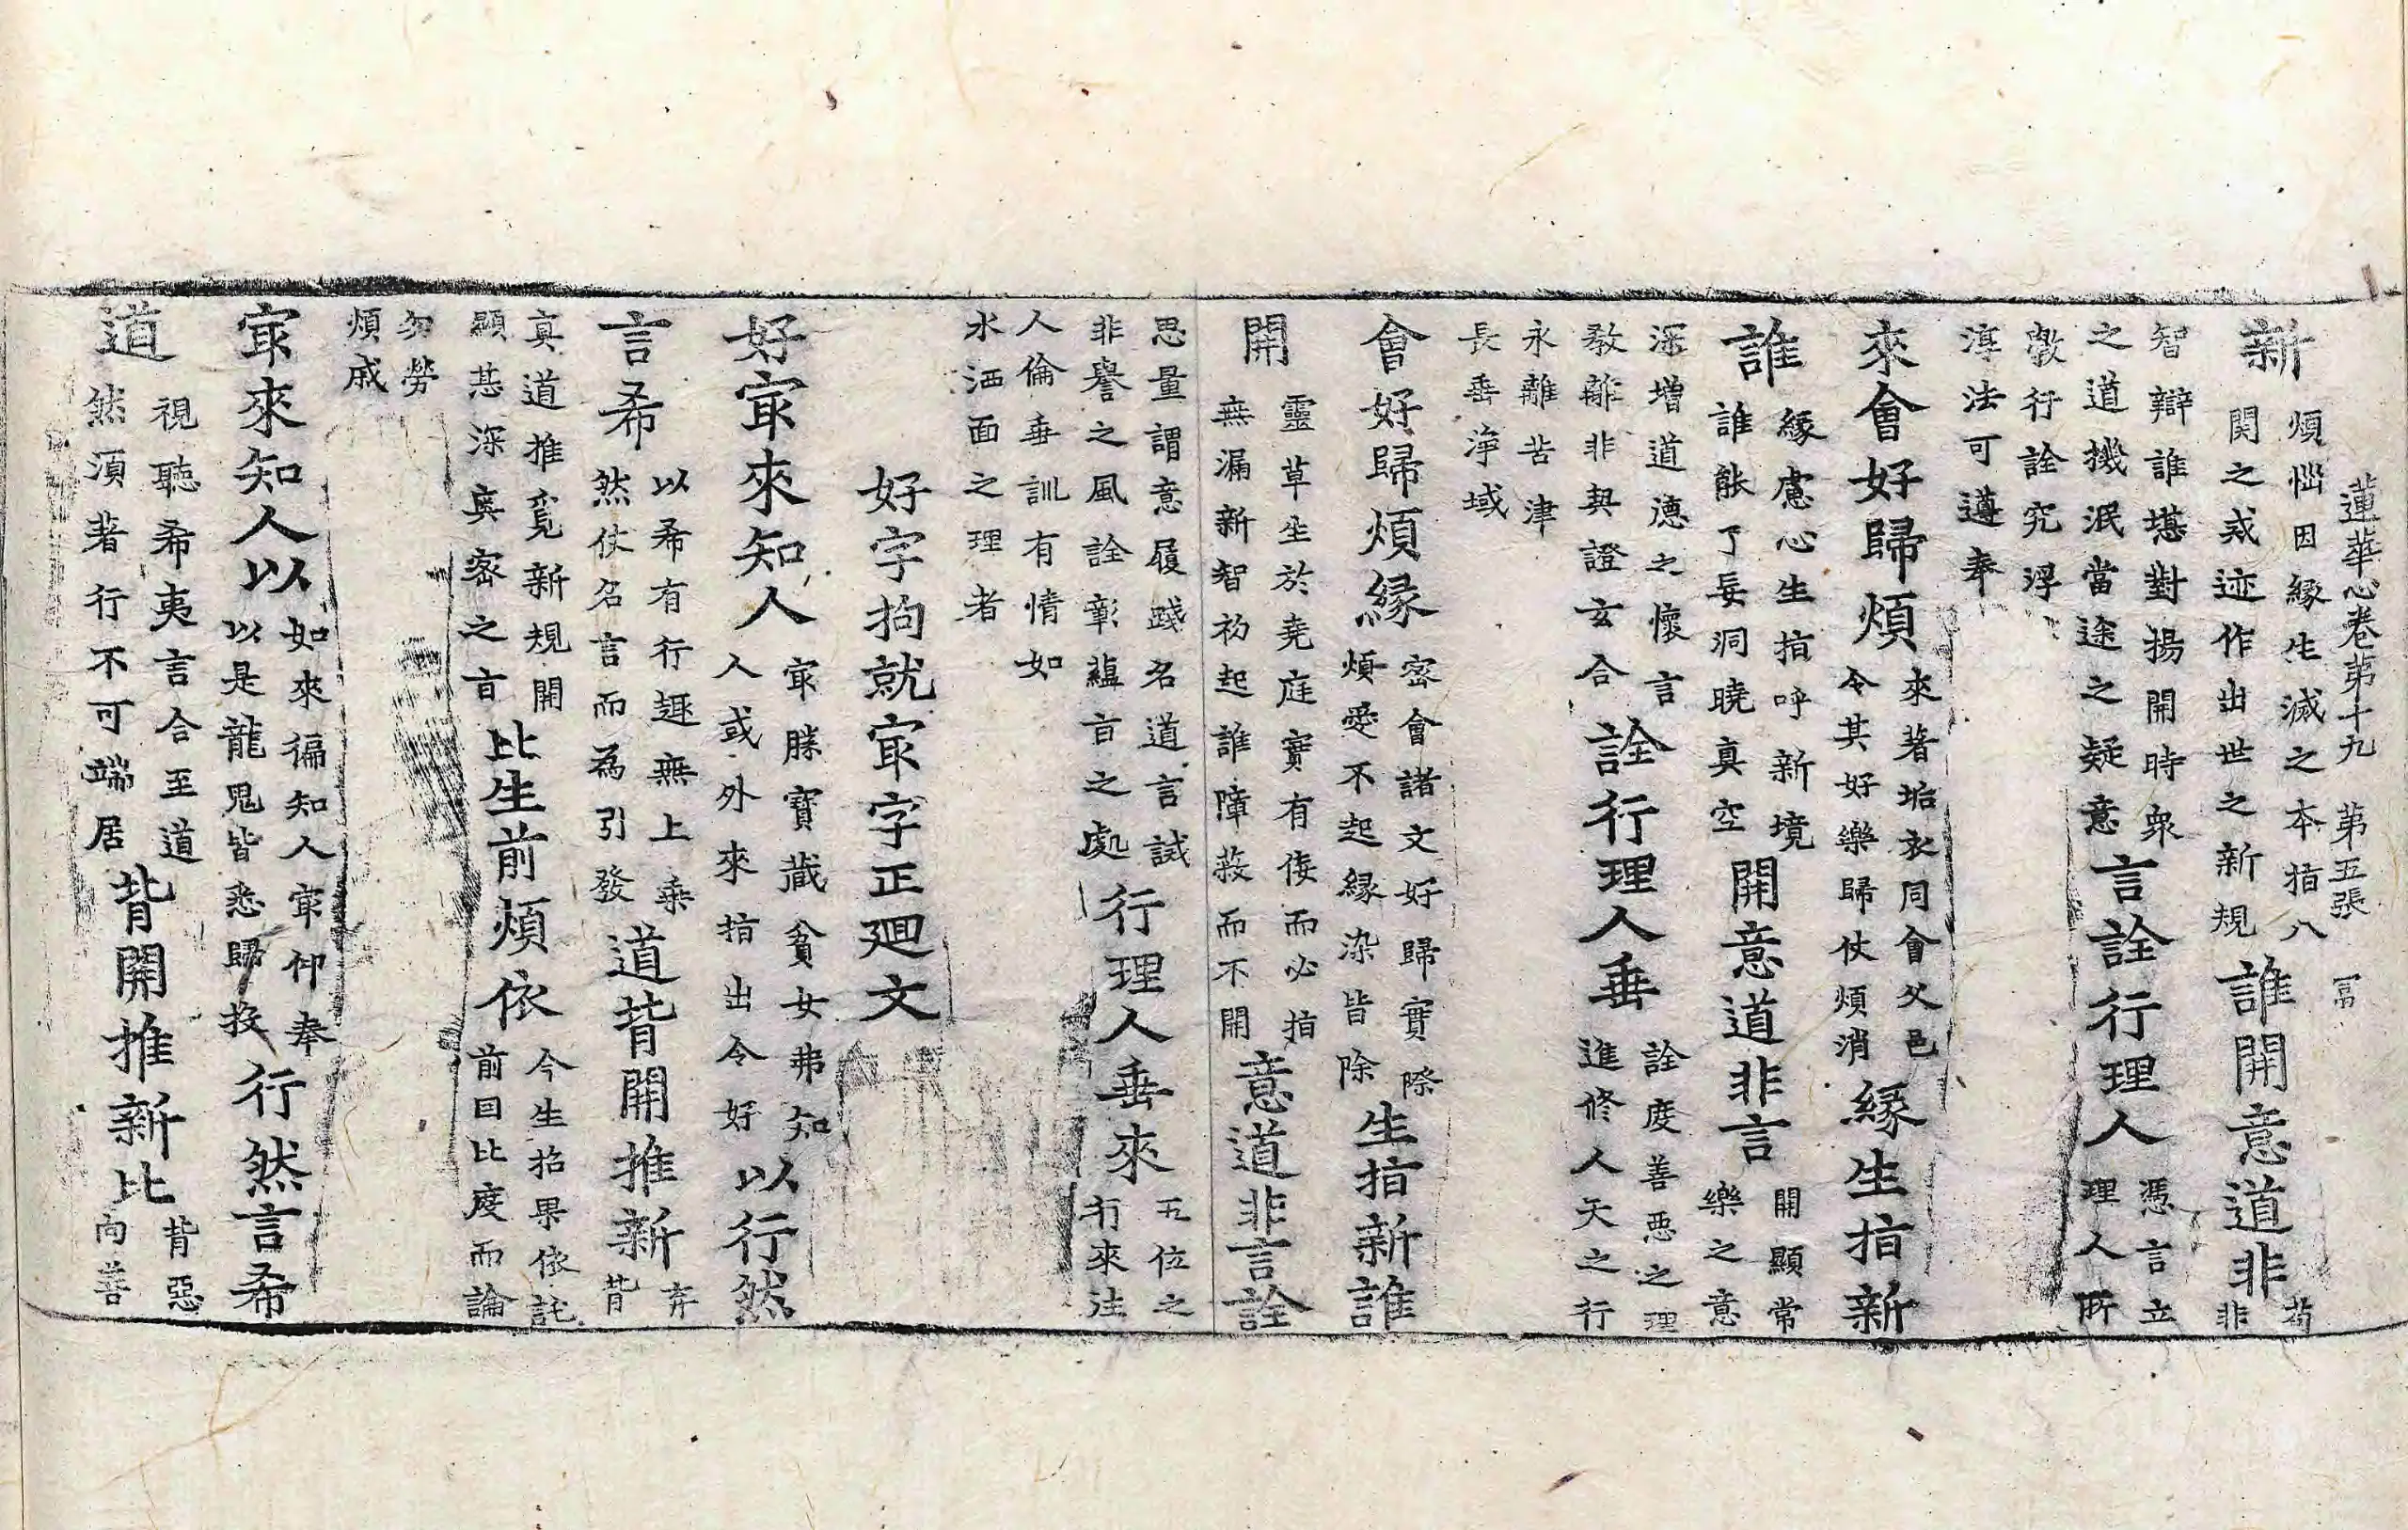 蓮華心卷第十九　第五張　冨
新
煩惱因緣生滅之本指八
関之戒迹作出世之新規
誰開意道非
苟
非
智辯誰堪對揚開時衆
之道機泯當途之疑意
言詮行理人
憑言立
理人所
敷行詮究浮
淳法可遵奉
來會好歸煩
來著垢衣同會父邑
令其好樂歸仗煩消
緣生指新
誰
緣慮心生指呼新境
誰能了妄洞曉真空
開意道非言
開顯常
樂之意
深增道德之懷言
教離非契證玄合
詮行理人垂
詮度善惡之理
進修人天之行
永離苦津
長垂淨域
會好歸煩緣
密會諸文好歸實際
煩愛不起緣染皆除
生指新誰
開
靈草生於堯庭實有倭而必指
無漏新智初起誰障蔽而不開
意道非言詮
思量謂意履踐名道言誡
非譽之風詮彰蘊旨之處
行理人垂來
五位之
行來注
人倫垂訓有情如
水洒面之理者
好字拘就㝡字正廻文
好㝡來知人
㝡勝寶藏貧女弗知
人或外來指出令好
以行然
言希
以希有行趣無上乘
然仗名言而為引發
道背開推新
弃
背
真道推覓新規開
顯甚深奥密之旨
比生前煩依
今生招果依託
前因比度而論
勿勞
煩戚
㝡來知人以
如來徧知人㝡仰奉
以是龍鬼皆悉歸投
行然言希
道
視聽希夷言合至道
然須著行不可端居
背開推新比
背惡
向善